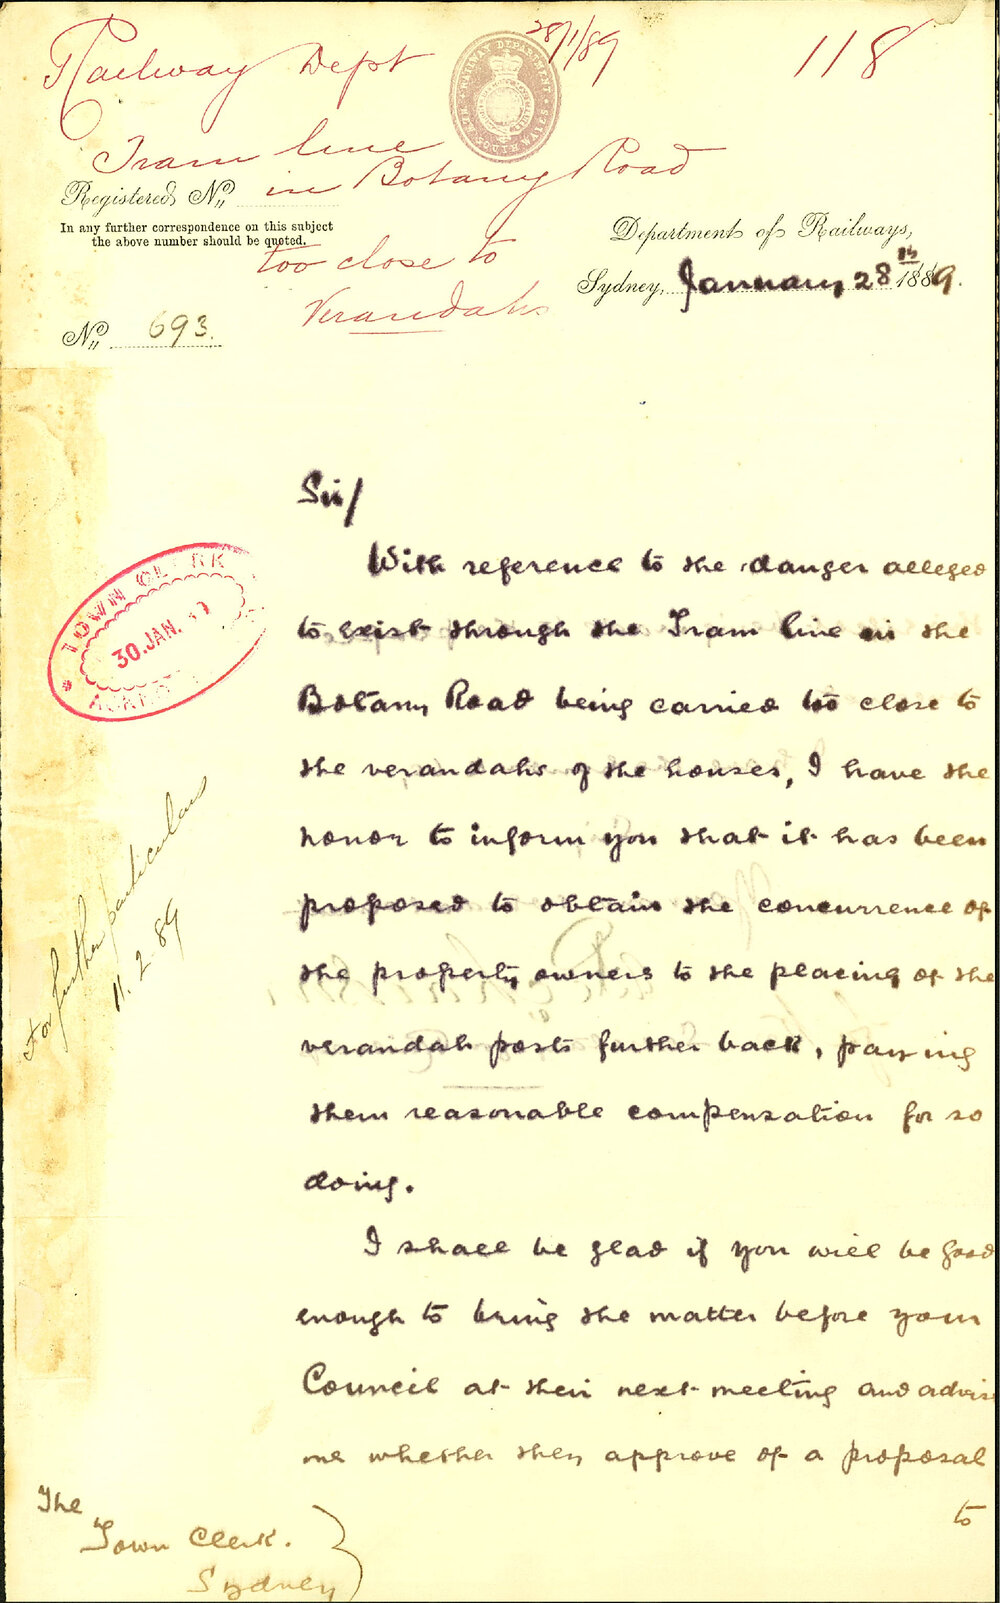 Railway Dept
28/1/89
118
RAILWAY DEPARTMENT
NEW SOUTH WALES
Tram line
in Botany Road
too close to
Verandahs
Registered No
In any further correspondence on this subject
the above number should be quoted.
No 693.
Department of Railways,
Sydney, January 28th 1889.
TOWN CLERK
30. JAN. 89
Sir/
With reference to the danger alleged
to exist through the Tram line in the
Botany Road being carried too close to
the verandahs of the houses, I have the
honor to inform you that it has been
proposed to obtain the concurrence of
the property owners to the placing of the
verandah posts further back, paying
them reasonable compensation for so
doing.
I shall be glad if you will be good
enough to bring the matter before your
Council at their next meeting and advise
me whether they approve of a proposal
to
For further particulars
11.2.89
The
Town Clerk.
Sydney